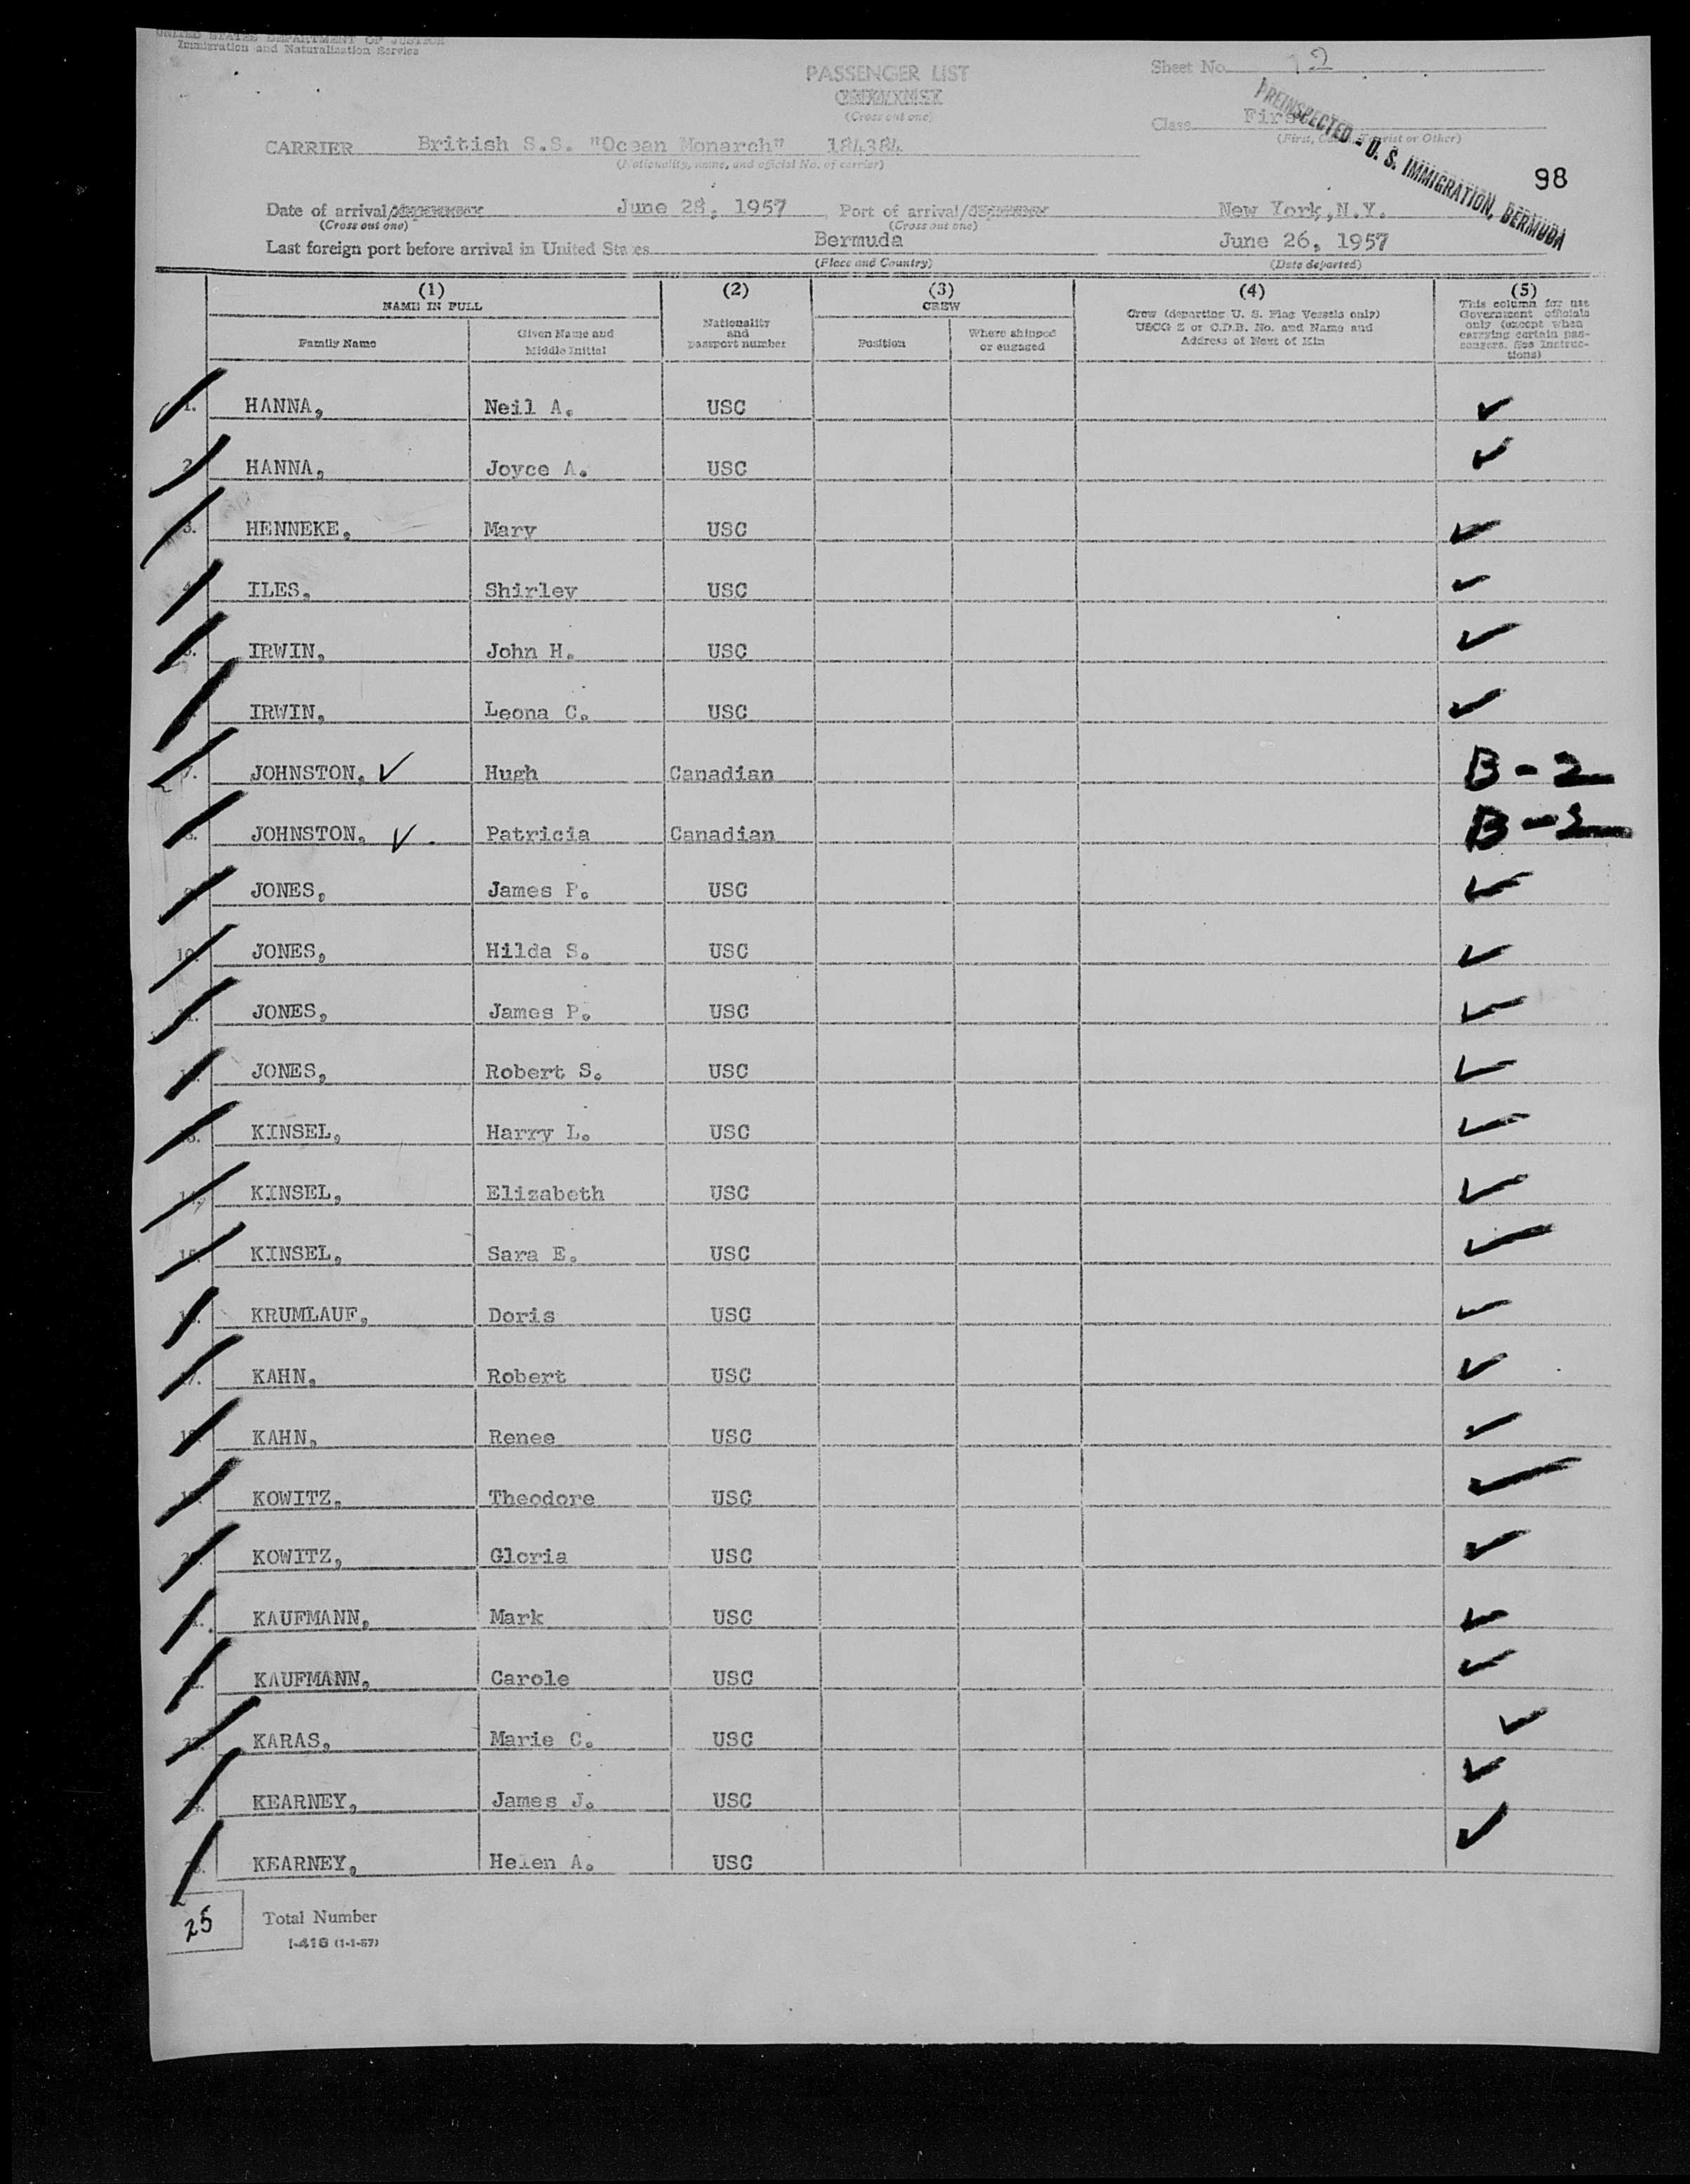 UNITED STATES DEPARTMENT OF JUSTICE
Immigration and Naturalization Service
PASSENGER LIST
(Cross out one)
Sheet No. 12
Class First
(First, Cabin, Tourist or Other)
PREINSPECTED - U. S. IMMIGRATION, BERMUDA
98
CARRIER British S.S. "Ocean Monarch" 184384
(Nationality, name, and official No. of carrier)
Date of arrival/ June 28, 1957, Port of arrival/ New York, N.Y.
(Cross out one) (Cross out one)
Last foreign port before arrival in United States Bermuda June 26, 1957
(Place and Country) (Date departed)
(1) (2) (3) (4) (5)
NAME IN FULL
Family Name
Given Name and Middle Initial
Nationality and passport number
CREW
Position
Where shipped or engaged
Crew (departing U. S. Flag Vessels only)
USCG Z or C.D.B. No. and Name and
Address of Next of Kin
This column for use
Government officials
only (except when
carrying certain pas-
sengers. See Instruc-
tions)
1. HANNA, Neil A. USC ✓
2. HANNA, Joyce A. USC ✓
3. HENNEKE, Mary USC ✓
4. ILES, Shirley USC ✓
5. IRWIN, John H. USC ✓
IRWIN, Leona C. USC ✓
7. JOHNSTON, ✓ Hugh Canadian B-2
8. JOHNSTON, ✓ Patricia Canadian B-2
9. JONES, James P. USC ✓
10. JONES, Hilda S. USC ✓
11. JONES, James P. USC ✓
12. JONES, Robert S. USC ✓
13. KINSEL, Harry L. USC ✓
14. KINSEL, Elizabeth USC ✓
15. KINSEL, Sara E. USC ✓
16. KRUMLAUF, Doris USC ✓
17. KAHN, Robert USC ✓
18. KAHN, Renee USC ✓
19. KOWITZ, Theodore USC ✓
20. KOWITZ, Gloria USC ✓
21. KAUFMANN, Mark USC ✓
22. KAUFMANN, Carole USC ✓
23. KARAS, Marie C. USC ✓
24. KEARNEY, James J. USC ✓
25. KEARNEY, Helen A. USC ✓
25 Total Number
I-418 (1-1-57)